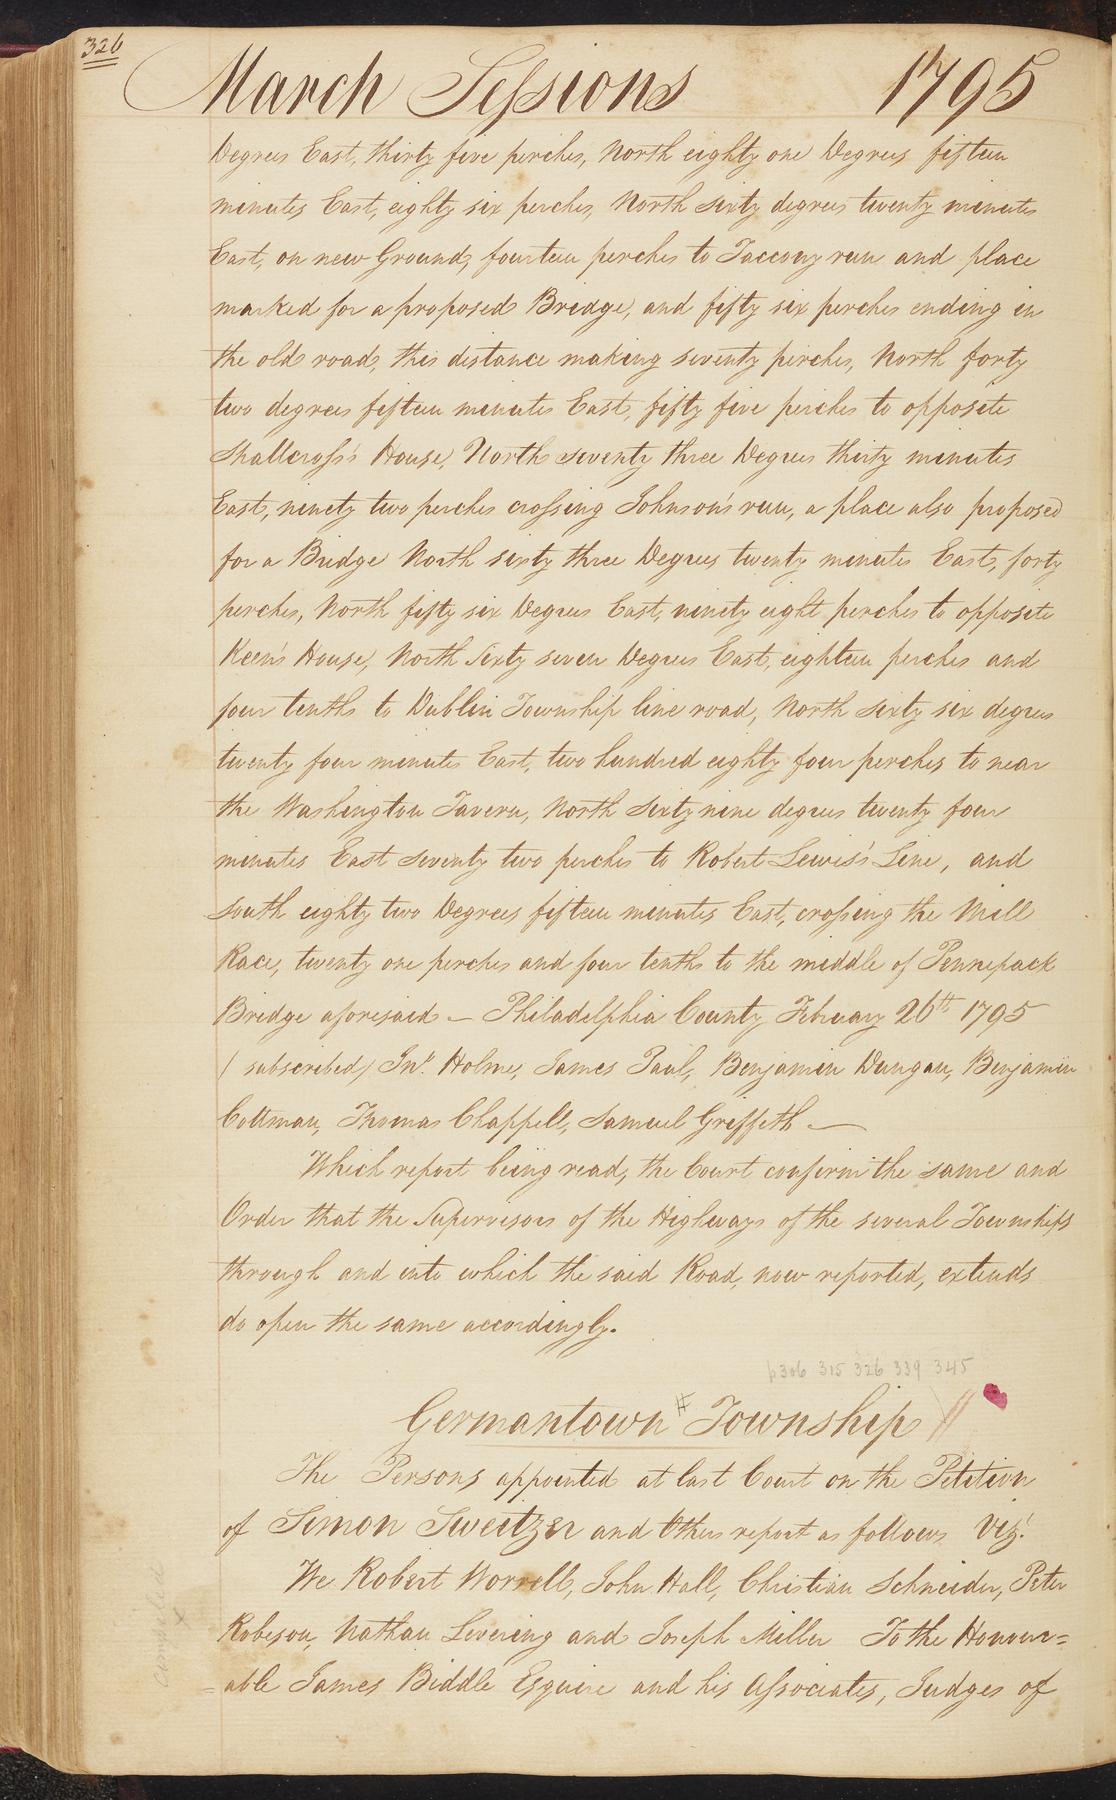 326
March Sessions 1795
Degrees East, thirty five perches, North eighty one Degrees fifteen
minutes East, eighty six perches, North sixty degrees twenty minutes
East, on new Ground, fourteen perches to Taccony run and place
marked for a proposed Bridge, and fifty six perches ending in
the old road, this distance making seventy perches, North forty
two degrees fifteen minutes East, fifty five perches to opposite
Shallcross's House, North seventy three Degrees thirty minutes
East, ninety two perches crossing Johnson's run, a place also proposed
for a Bridge North sixty three Degrees twenty minutes East, forty
perches, North fifty six Degrees East, ninety eight perches to opposite
Keen's House, North Sixty seven Degrees East, eighteen perches and
four tenths to Dublin Township line road, North sixty six degrees
twenty four minutes East, two hundred eighty four perches to near
the Washington Tavern, North Sixty nine degrees twenty four
minutes East seventy two perches to Robert Lewis's Line, and
South eighty two Degrees fifteen minutes East, crossing the Mill
Race, twenty one perches and four tenths to the middle of Pennepack
Bridge aforesaid — Philadelphia County February 26th 1795
(subscribed) Jnº. Holme, James Paul, Benjamin Dungan, Benjamin
Cottman, Thomas Chappell, Samuel Griffeth —
Which report being read, the Court confirm the same and
Order that the Supervisors of the Highways of the several Townships
through and into which the said Road, now reported, extends
do open the same accordingly.
p306 315 326 339 345
Germantown # Township //
The Persons appointed at last Court on the Petition
of Simon Sweitzer and Others report as follows Vizt.
We Robert Worrell, John Hall, Christian Schneider, Peter
Robeson, Nathan Levering and Joseph Miller To the Honour=
=able James Biddle Esquire and his Associates, Judges of